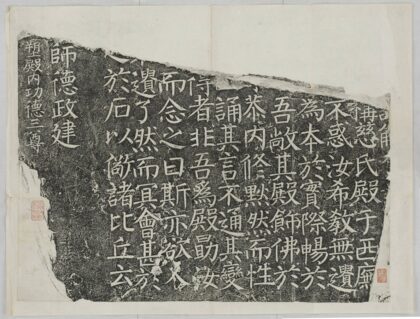 構慈氏殿于西廡
不惑汝希教無遺
為本於實際暢於
吾敞其殿飾佛於
恭內修默然而性
誦其言不通其變
侍者非吾為殿勗汝
而念之曰斯亦欲人
遺了然而冥會甚於
於石以俻諸比丘云
師德政建
塑殿內功德三尊